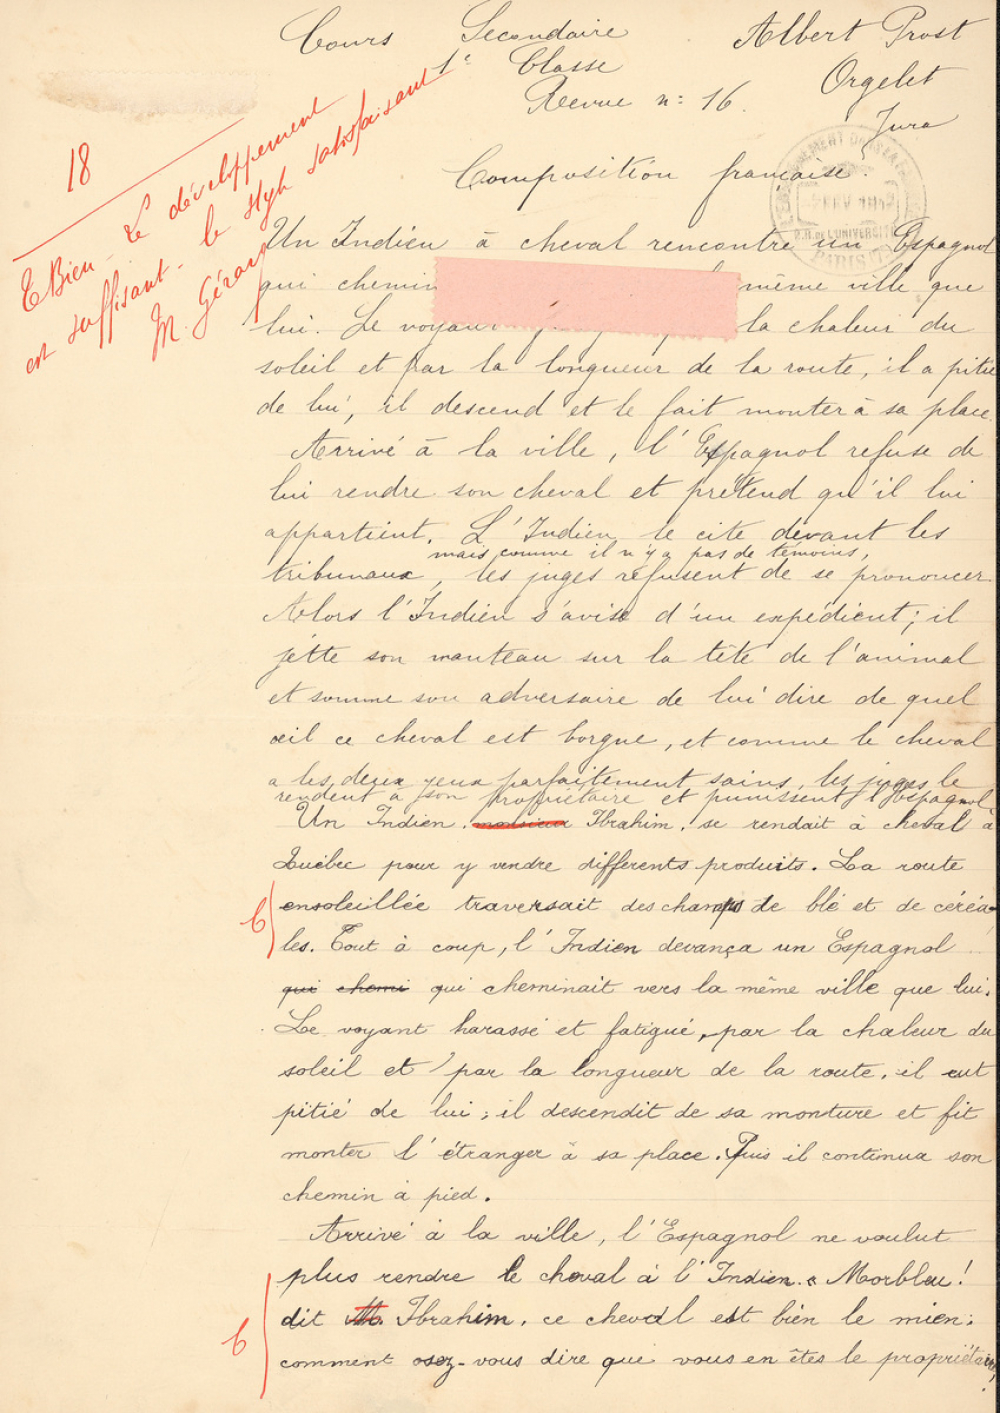 Cours Secondaire
1e Classe
Revue n: 16
Albert Prost
Orgelet
Jura
18
TBien - Le développement
est suffisant - le style satisfaisant
M. Gérard
Composition française.
Un Indien à cheval rencontre un Espagnol
qui chemin même ville que
lui. Le voyant la chaleur du
soleil et par la longueur de la route, il a pitié
de lui, il descend et le fait monter à sa place.
Arrivé à la ville, l'Espagnol refuse de
lui rendre son cheval et prétend qu'il lui
appartient. L'Indien le cite devant les
mais comme il n'y a pas de témoins,
tribunaux, les juges refusent de se prononcer
Alors l'Indien s'avise d'un expédient; il
jette son manteau sur la tête de l'animal
et somme son adversaire de lui dire de quel
œil ce cheval est borgne, et comme le cheval
a les deux yeux parfaitement sains, les juges le
rendent à son propriétaire et punissent l'Espagnol
Un Indien, monsieur Ibrahim, se rendait à cheval à
Québec pour y vendre differents produits. La route
B
ensoleillée traversait des champs de blé et de céréa-
les. Tout à coup, l'Indien devança un Espagnol
qui chemi qui cheminait vers la même ville que lui.
Le voyant harassé et fatigué, par la chaleur du
soleil et par la longueur de la route, il eut
pitié de lui; il descendit de sa monture et fit
monter l'étranger à sa place. Puis il continua son
chemin à pied.
Arrivé à la ville, l'Espagnol ne voulut
plus rendre le cheval à l'Indien. « Morbleu!
B
dit M. Ibrahim, ce cheval est bien le mien;
comment osez-vous dire que vous en êtes le propriétaire,